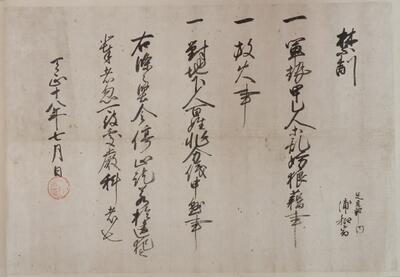 禁制
足立郡内
浦和
一 軍勢甲乙人等乱妨狼藉事
一 放火事
一 對地下人百姓非分儀申懸事
右條々堅令停止訖若於違犯
輩者忽可被處嚴科者也
天正十八年七月日